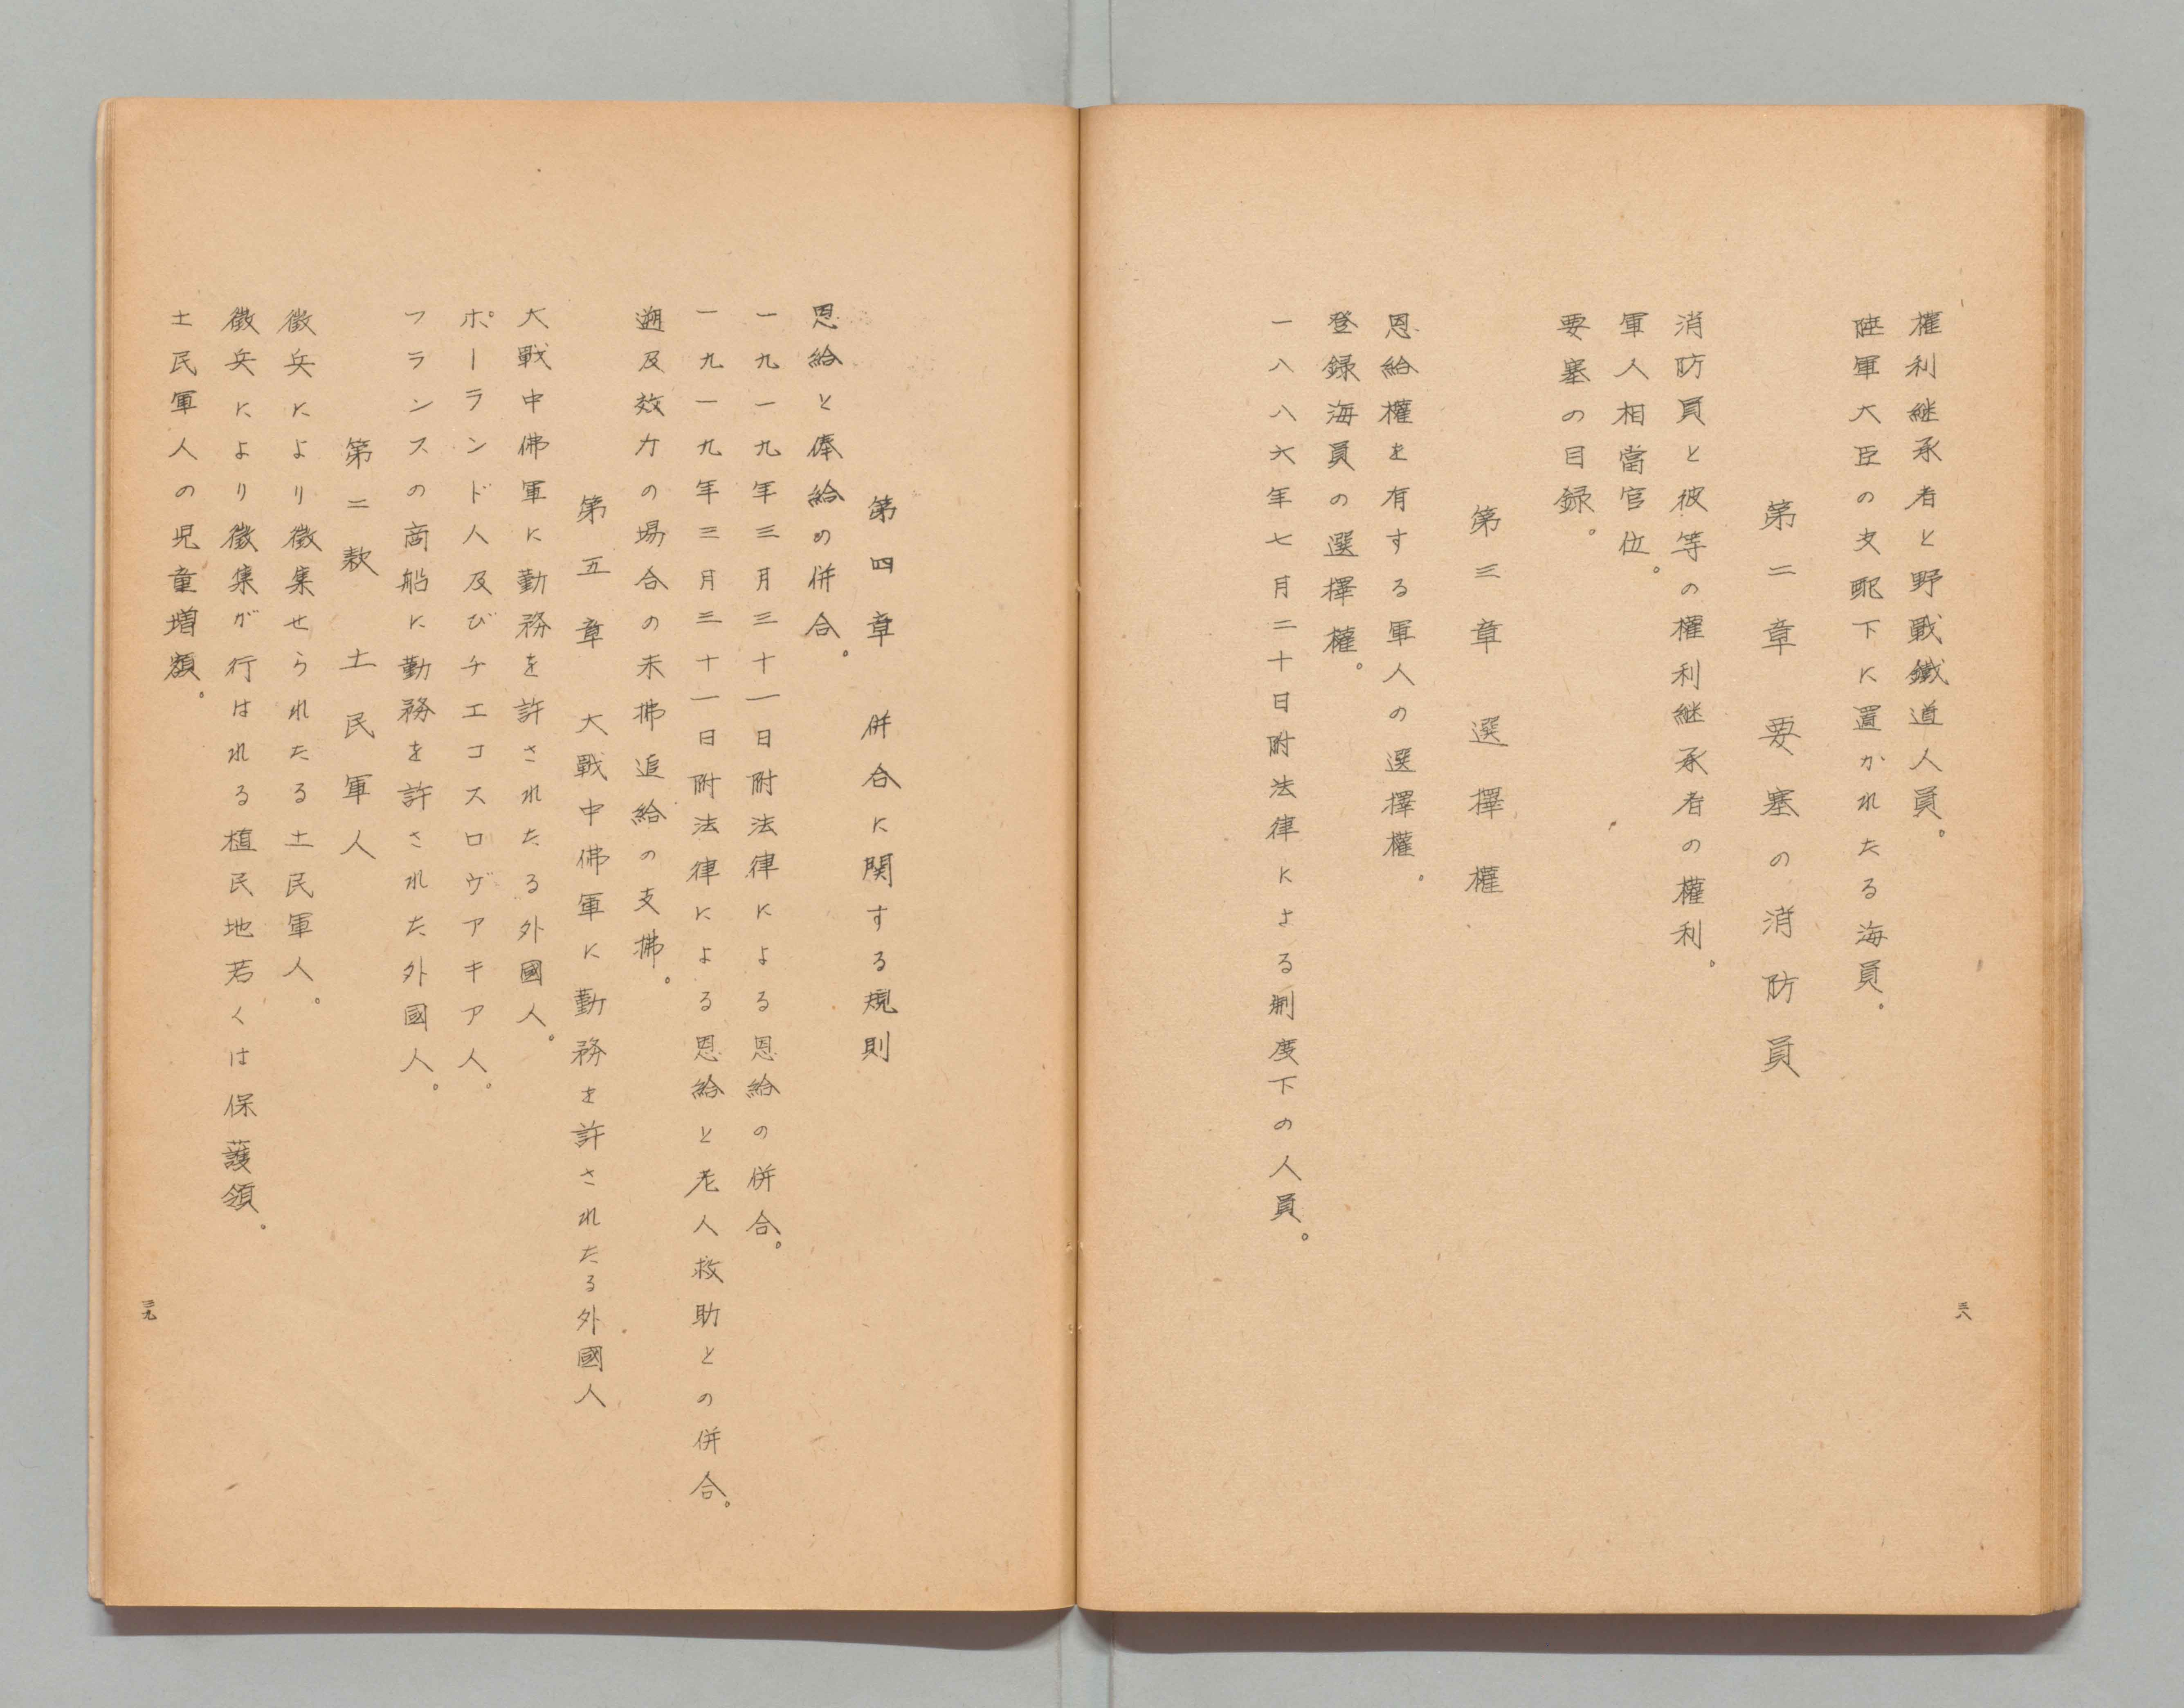 權利継承者と野戰鐵道人員。
陸軍大臣の支配下に置かれたる海員。
第二章 要塞の消防員
消防員と彼等の權利継承者の權利。
軍人相當官位。
要塞の目録。
第三章 選擇權
恩給權を有する軍人の選擇權。
登録海員の選擇權。
一八八六年七月二十日附法律による制度下の人員。
三八
第四章 併合に関する規則
恩給と俸給の併合。
一九一九年三月三十一日附法律による恩給の併合。
一九一九年三月三十一日附法律による恩給と老人救助との併合。
遡及效力の場合の未拂追給の支拂。
第五章 大戰中佛軍に勤務を許されたる外國人
大戰中佛軍に勤務を許されたる外國人。
ポーランド人及びチエコスロヴアキア人。
フランスの商船に勤務を許された外國人。
第二款 土民軍人
徴兵により徴集せられたる土民軍人。
徴兵により徴集が行はれる植民地若くは保護領。
土民軍人の児童増額。
三九